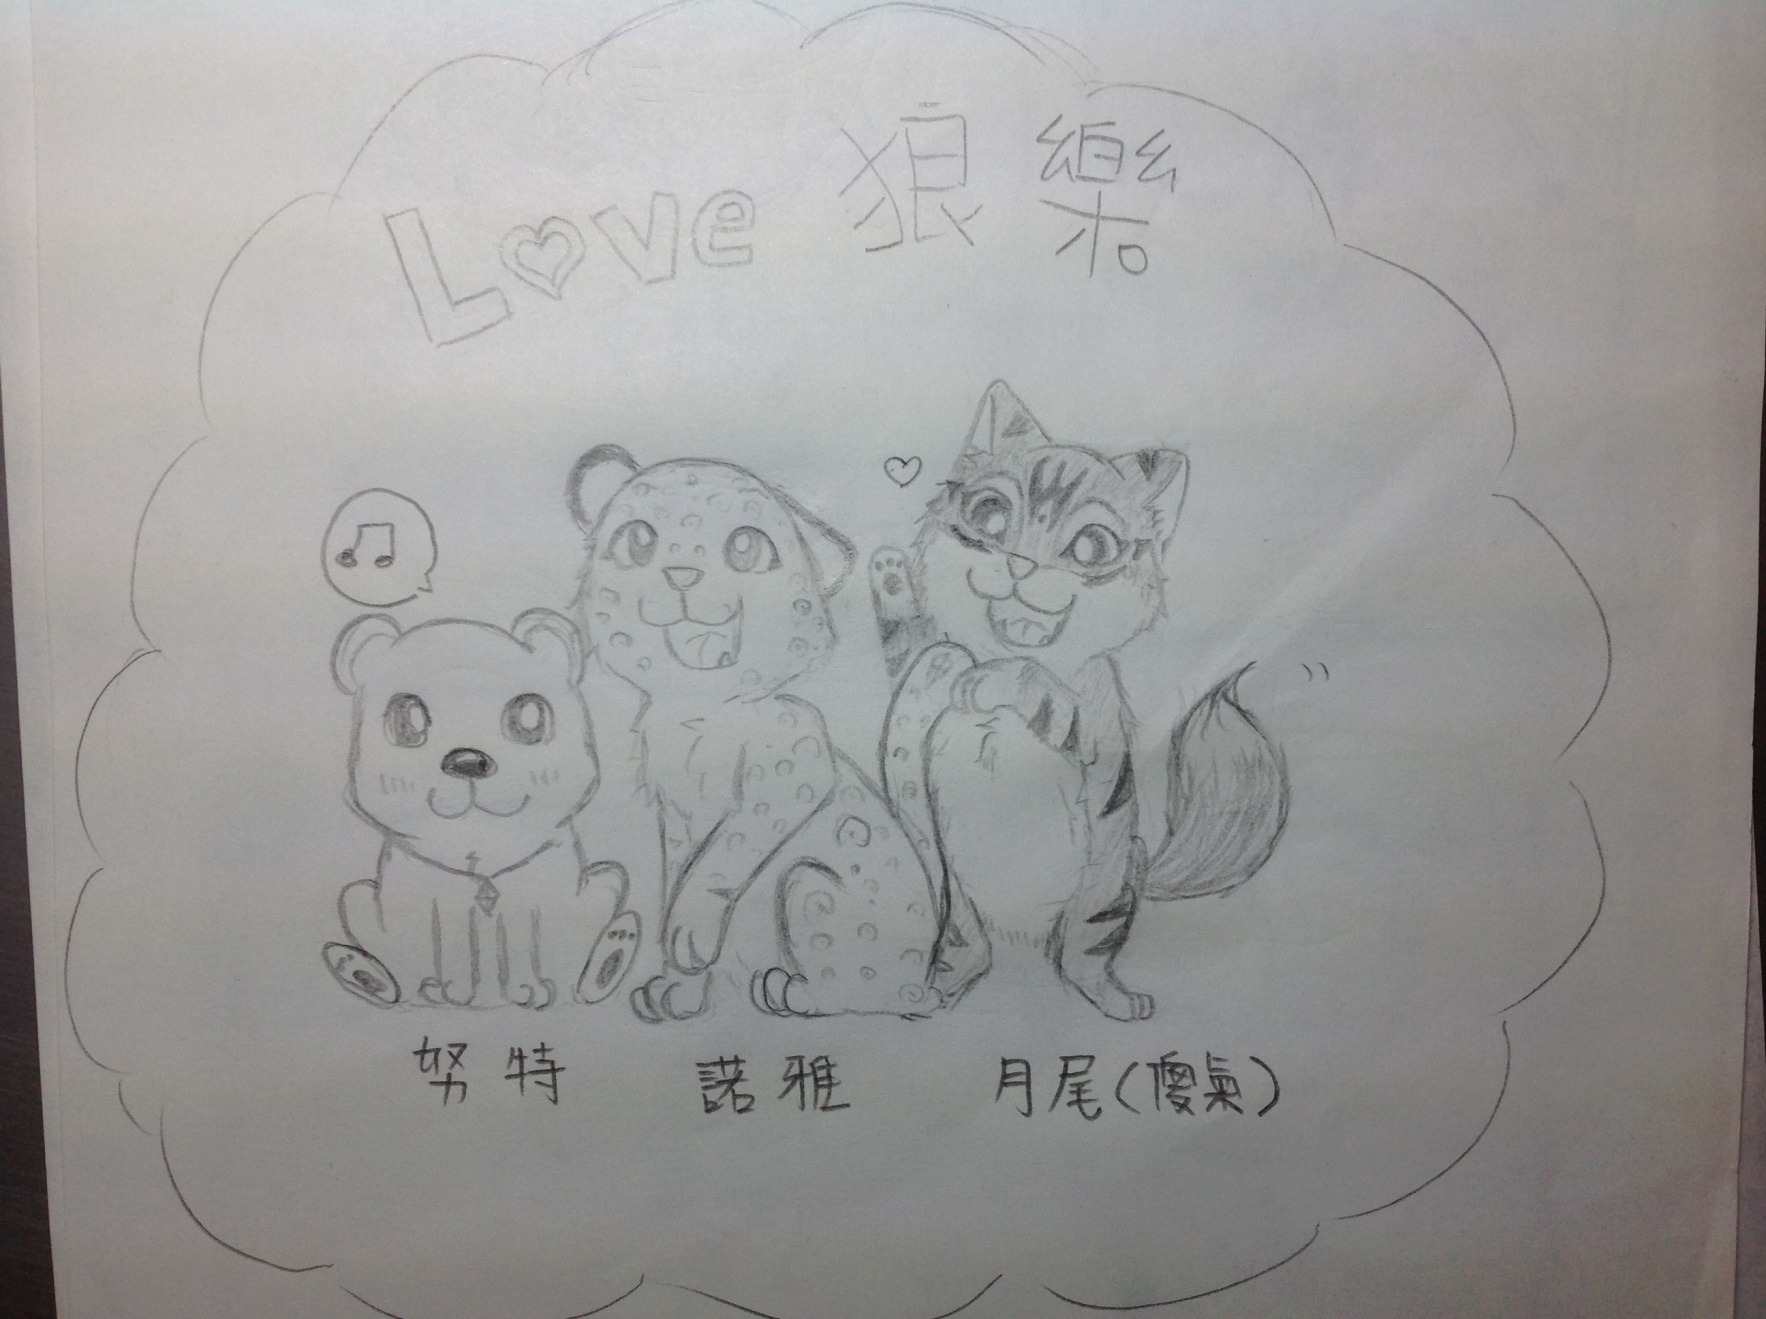 Love 狼樂
努特 諾雅 月尾(傻氣)